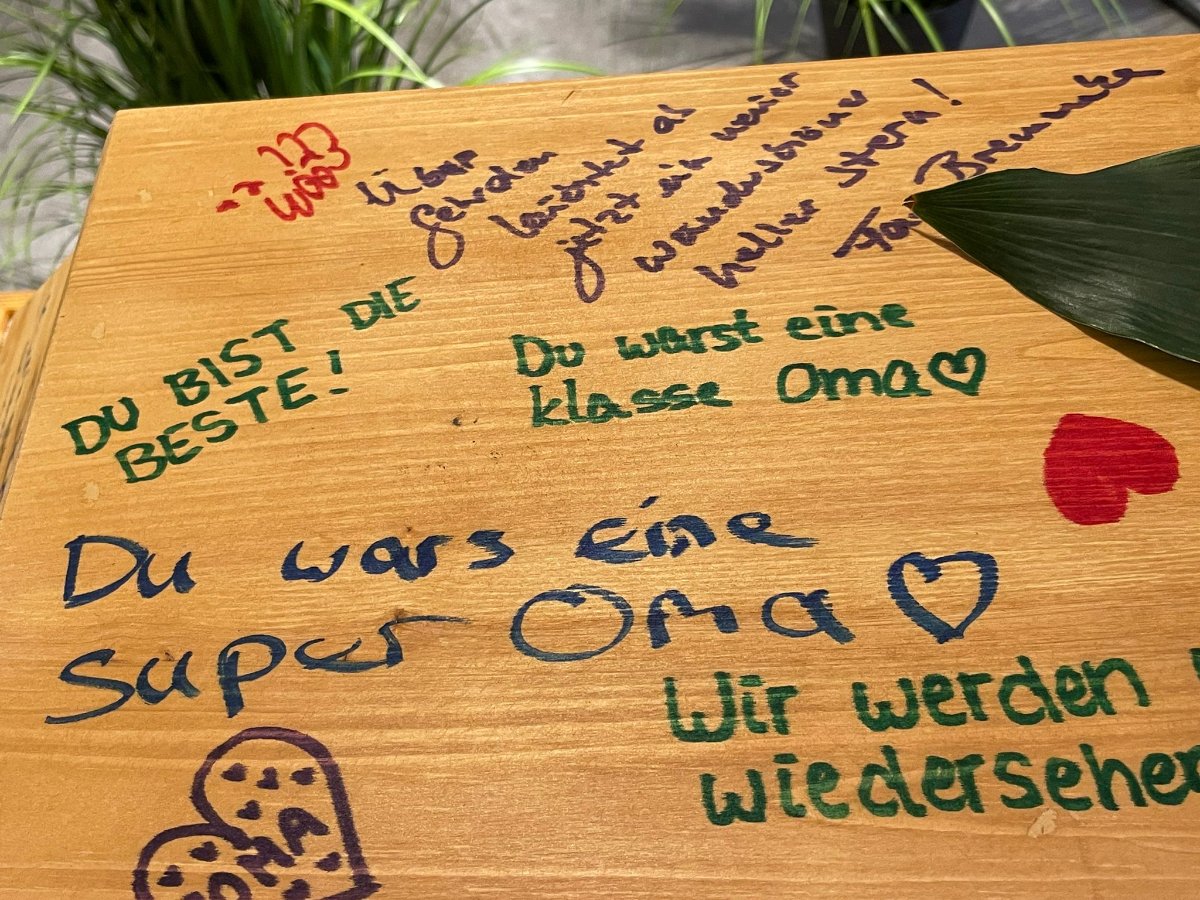 Über
Gehrden
leuchtet ab
jetzt ein weiter
wunderschöner
heller Stern!
Fam Bremmeke
DU BIST DIE
BESTE!
Du warst eine
klasse Oma
Du wars eine
super Oma
Wir werden
wiedersehen
OMA